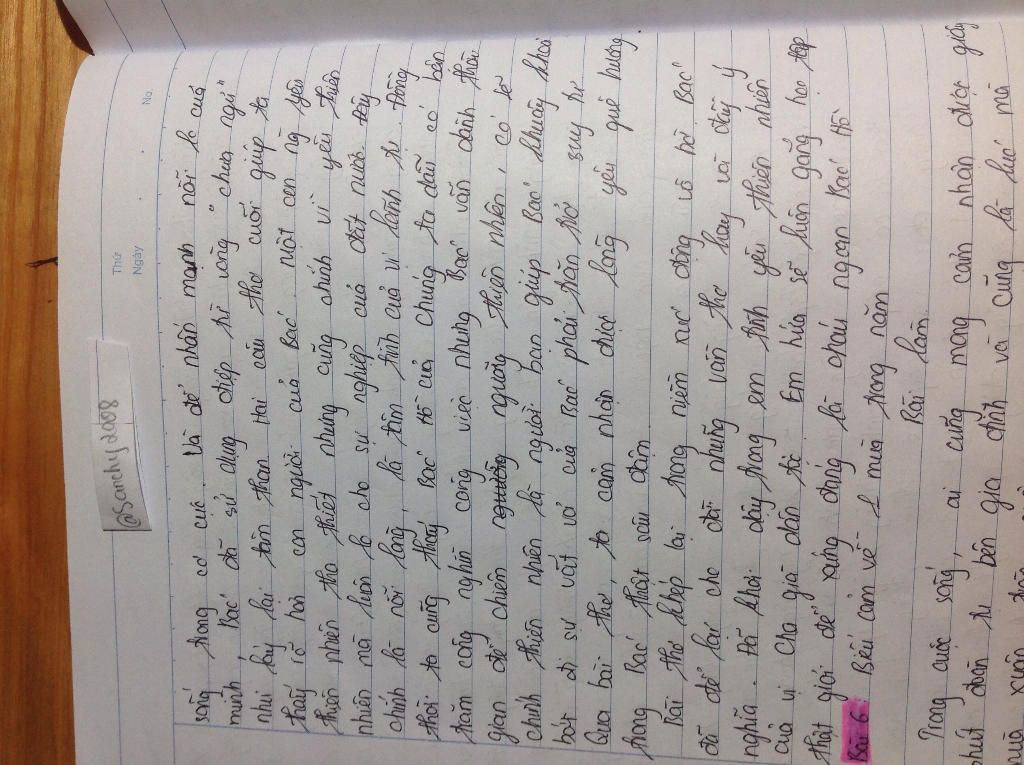 @Sanchy2008
Thứ
Ngày
No.
sống trong cơ cực. Và để nhấn mạnh nỗi lo của
mình Bác đã sử dụng điệp từ vòng "chưa ngủ"
như láy lại tâm than Hai câu thơ cuối giúp ta
thấy rõ hơn con người của Bác. Một con ng yêu
thiên nhiên tha thiết nhưng cũng chính vì yêu thiên
nhiên mà luôn lo cho sự nghiệp của đất nước đây
chính là nỗi lòng, là tâm tình của vị lãnh tụ. Đồng
thời ta cũng thấy Bác Hồ của chúng ta dẫu có bận
trăm công nghìn công việc nhưng Bác vẫn dành thời
gian để chiêm người thiên nhiên, có lẽ
chính thiên nhiên là người bạn giúp Bác khuây khoả
bớt đi sự vất vả của Bác phải trăn trở suy tư
Qua bài thơ, ta cảm nhận được lòng yêu quê hương
trong Bác thật sâu đậm.
Bài thơ khép lại trong niềm xúc động vô bờ Bác
đã để lại cho đời những vần thơ hay và đầy ý
nghĩa. Đã khơi dậy trong em tình yêu thiên nhiên
của vị Cha già dân tộc. Em hứa sẽ luôn gắng học tập
thật giỏi để xứng đáng là cháu ngoan Bác Hồ
Bài 6 Biểu cảm về 1 mùa trong năm
Bài làm
Trong cuộc sống, ai cũng mong cảm nhận được giây
phút đoàn tụ bên gia đình và cũng là lúc mà
mùa xuân